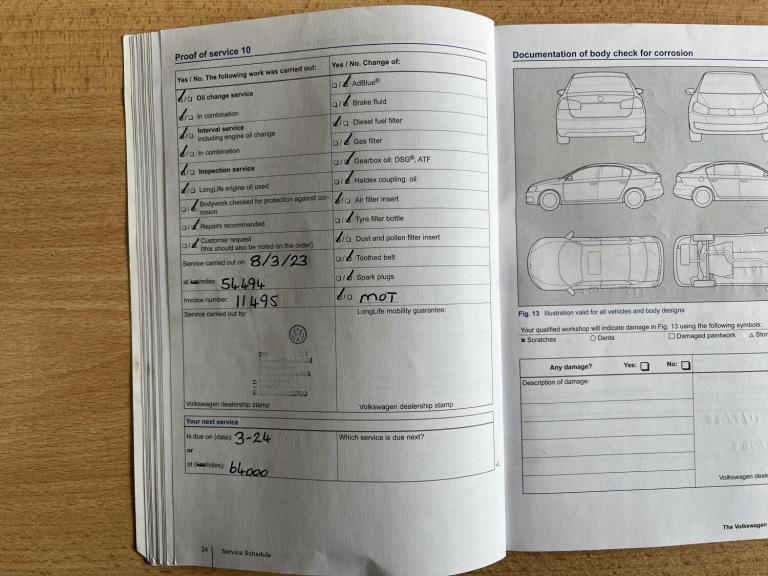 Proof of service 10
Yes / No. The following work was carried out:
Oil change service
In combination
Interval service
including engine oil change
In combination
Inspection service
LongLife engine oil used
Bodywork checked for protection against cor-
rosion
Repairs recommended
Customer request
(this should also be noted on the order)
Service carried out on: 8/3/23
at km/miles: 54494
Invoice number: 11495
Service carried out by:
Volkswagen dealership stamp
Yes / No. Change of:
AdBlue®
Brake fluid
Diesel fuel filter
Gas filter
Gearbox oil: DSG®, ATF
Haldex coupling: oil
Air filter insert
Tyre filler bottle
Dust and pollen filter insert
Toothed belt
Spark plugs
MOT
LongLife mobility guarantee:
Volkswagen dealership stamp
Your next service
Is due on (date): 3-24
or
at (km/miles): 64000
Which service is due next?
24 | Service Schedule
Documentation of body check for corrosion
Fig. 13 Illustration valid for all vehicles and body designs
Your qualified workshop will indicate damage in Fig. 13 using the following symbols:
× Scratches ○ Dents □ Damaged paintwork △ Stor
Any damage? Yes: No:
Description of damage:
Volkswagen deale
The Volkswagen